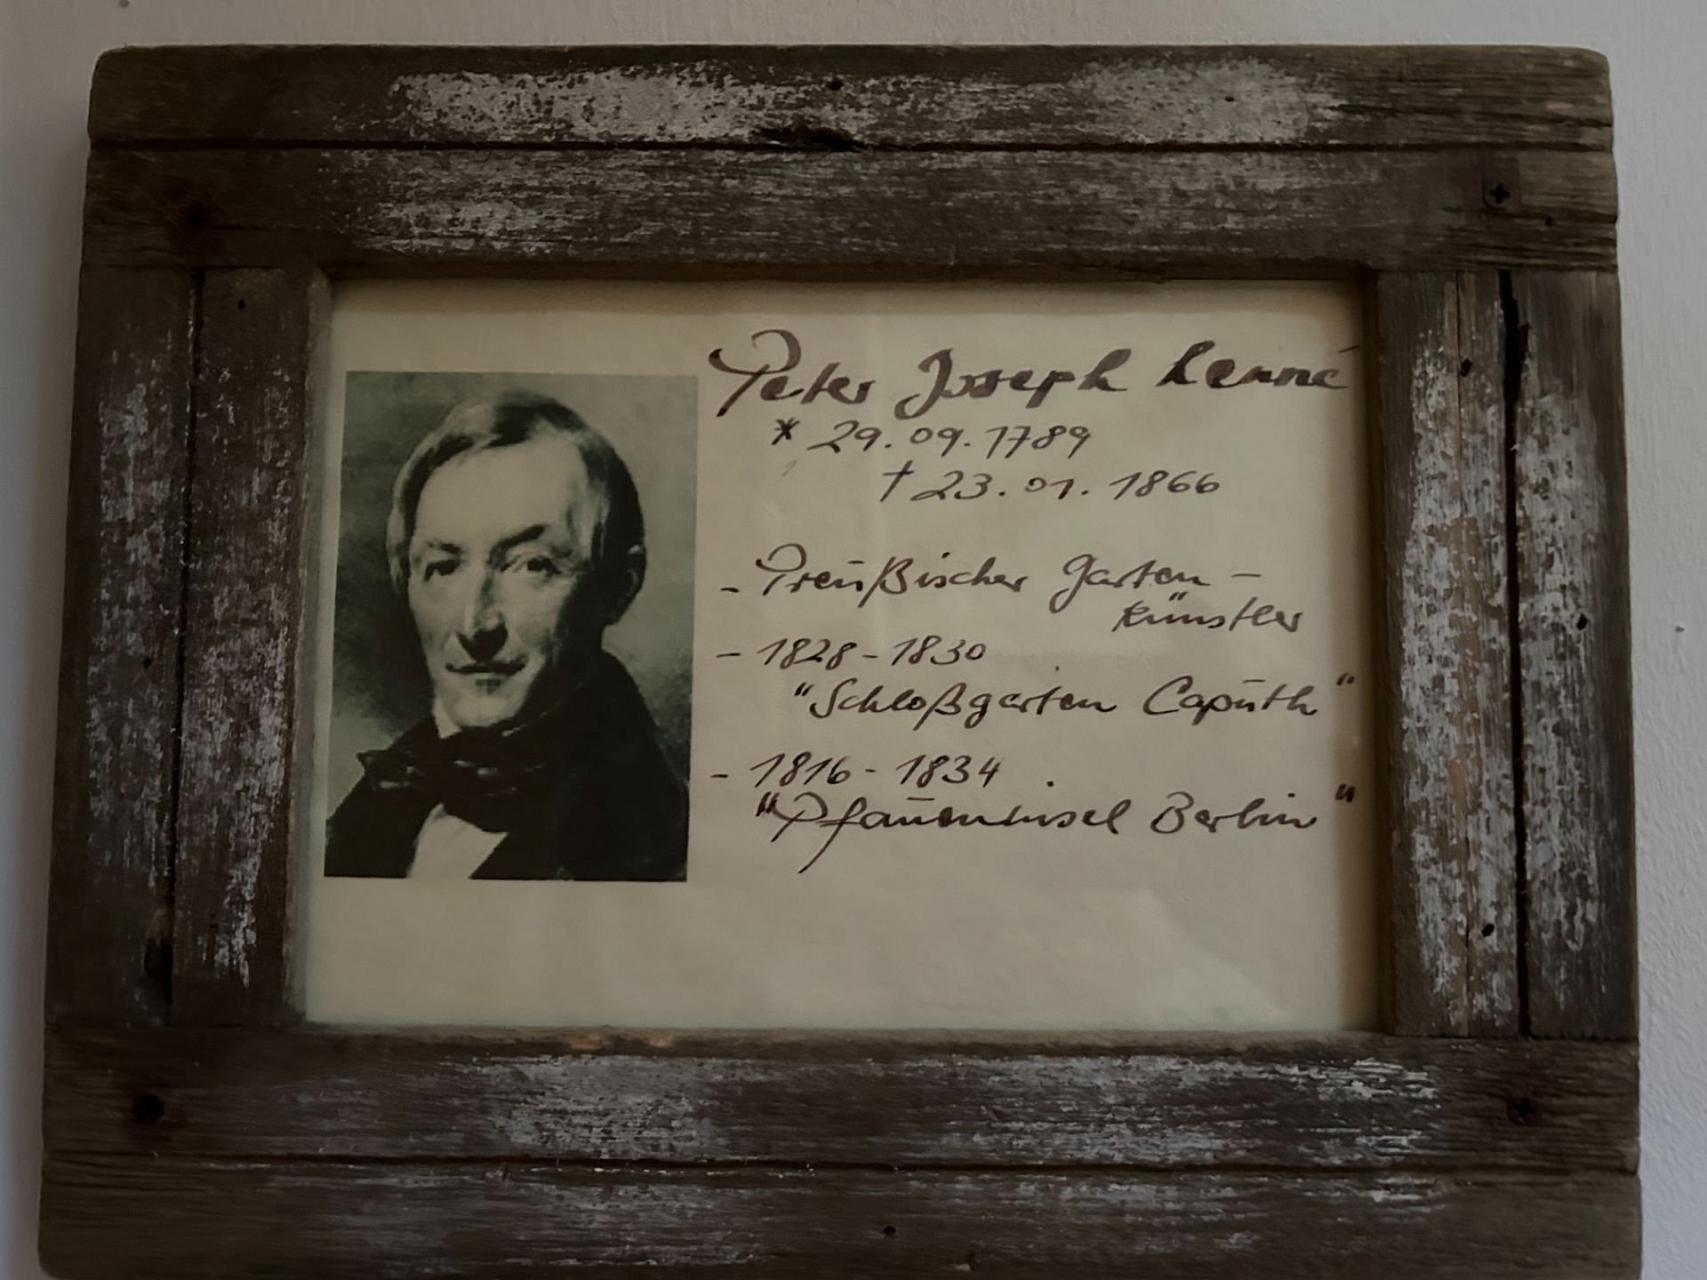 Peter Joseph Lenné
* 29.09.1789
† 23.01.1866
- Preußischer Garten-
künstler
- 1828-1830
"Schloßgarten Caputh"
- 1816-1834
"Pfaueninsel Berlin"